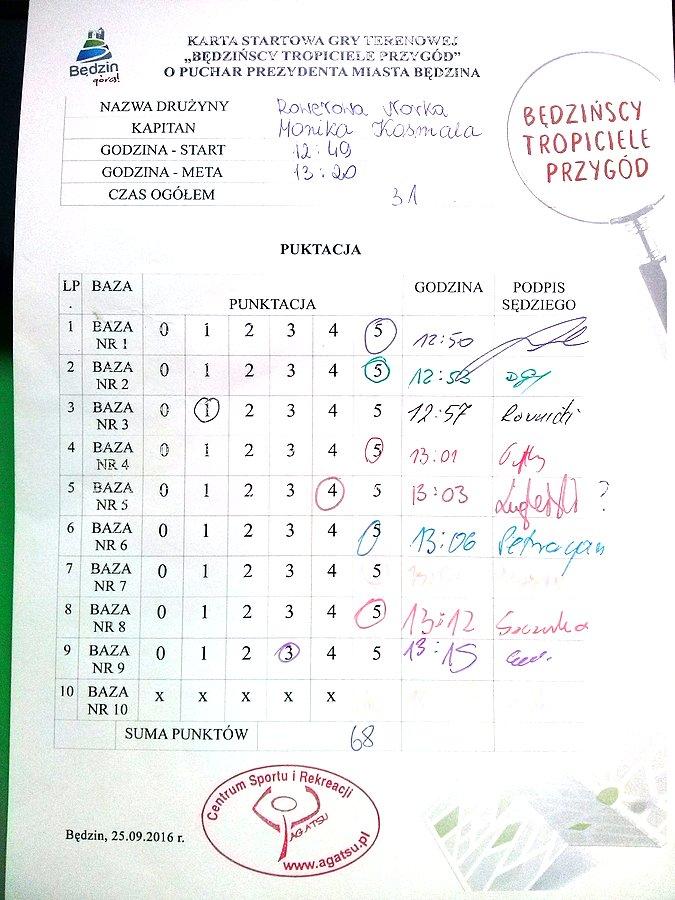 Będzin
górą!
KARTA STARTOWA GRY TERENOWEJ
„BĘDZIŃSCY TROPICIELE PRZYGÓD”
O PUCHAR PREZYDENTA MIASTA BĘDZINA
BĘDZIŃSCY
TROPICIELE
PRZYGÓD
NAZWA DRUŻYNY Rowerowa Norka
KAPITAN Monika Kosmala
GODZINA - START 12:49
GODZINA - META 13:20
CZAS OGÓŁEM 31
PUKTACJA
LP. BAZA PUNKTACJA GODZINA PODPIS SĘDZIEGO
1 BAZA NR 1 0 1 2 3 4 5 12:50
2 BAZA NR 2 0 1 2 3 4 5 12:53
3 BAZA NR 3 0 1 2 3 4 5 12:57
4 BAZA NR 4 0 1 2 3 4 5 13:01
5 BAZA NR 5 0 1 2 3 4 5 13:03 ?
6 BAZA NR 6 0 1 2 3 4 5 13:06
7 BAZA NR 7 0 1 2 3 4 5
8 BAZA NR 8 0 1 2 3 4 5 13:12
9 BAZA NR 9 0 1 2 3 4 5 13:15
10 BAZA NR 10 x x x x x
SUMA PUNKTÓW 68
Centrum Sportu i Rekreacji
AGATSU
www.agatsu.pl
Będzin, 25.09.2016 r.